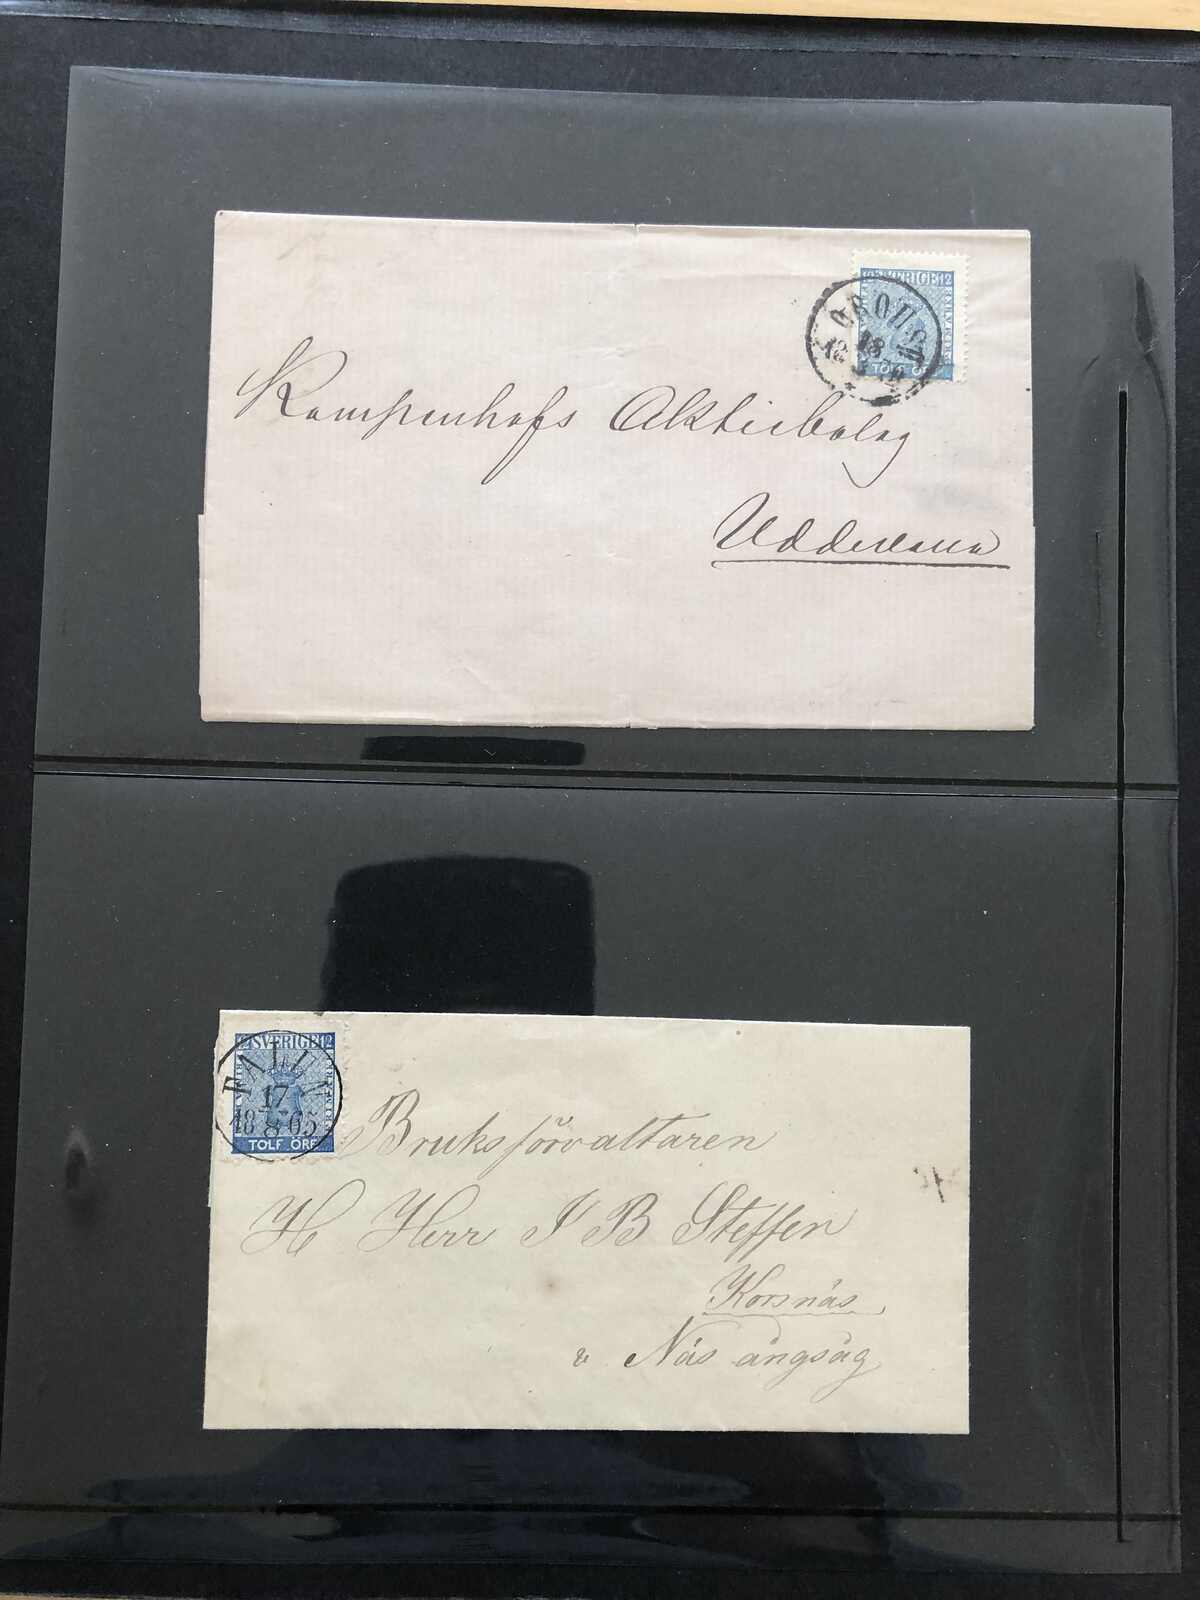 SVERIGE 12
TOLF ÖRE
Kampenhofs Aktiebolag
Uddevalla
12 SVERIGE 12
FALUN
17
18 8 65
TOLF ÖRE
Bruksförvaltaren
H Herr J B Steffen
Korsnäs
Näs ångsåg